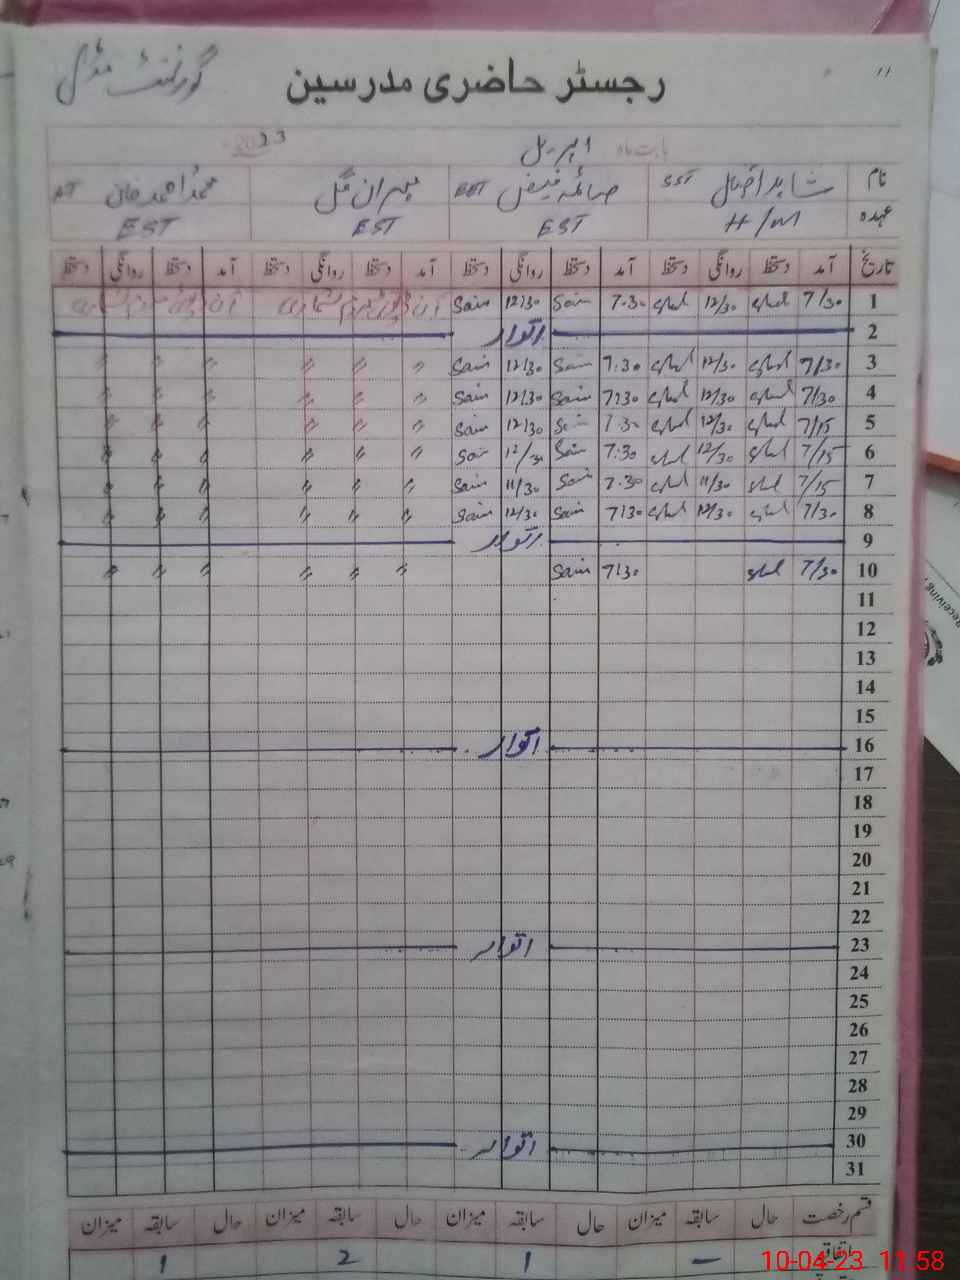 گورنمنٹ مڈل رجسٹر حاضری مدرسین
بابت ماہ اپریل 2023
نام شاہد اقبال SST صائمہ فیض EST مہران گل محمد احمد خان AT
عہدہ H/M EST EST EST
تاریخ آمد دستخط روانگی دستخط آمد دستخط روانگی دستخط آمد دستخط روانگی دستخط آمد دستخط روانگی دستخط
1 7/30 12/30 7.30 Saim 12/30 Saim
2 اتوار
3 7/30 12/30 7:30 Saim 12/30 Saim 〃 〃 〃 〃 〃 〃
4 7/30 12/30 7:30 Saim 12/30 Saim 〃 〃 〃 〃 〃 〃
5 7/15 12/30 7.30 Saim 12/30 Saim 〃 〃 〃 〃 〃 〃
6 7/15 12/30 7:30 Saim 12/30 Saim 〃 〃 〃 〃 〃 〃
7 7/15 11/30 7.30 Saim 11/30 Saim 〃 〃 〃 〃 〃 〃
8 7/30 12/30 7:30 Saim 12/30 Saim 〃 〃 〃 〃 〃 〃
9 اتوار
10 7/30 7:30 Saim 〃 〃 〃 〃 〃 〃
11
12
13
14
15
16 اتوار
17
18
19
20
21
22
23 اتوار
24
25
26
27
28
29
30 اتوار
31
قسم رخصت حال سابقہ میزان حال سابقہ میزان حال سابقہ میزان حال سابقہ میزان
اتفاقیہ – 1 2 1
10-04-23 11:58
Receiving